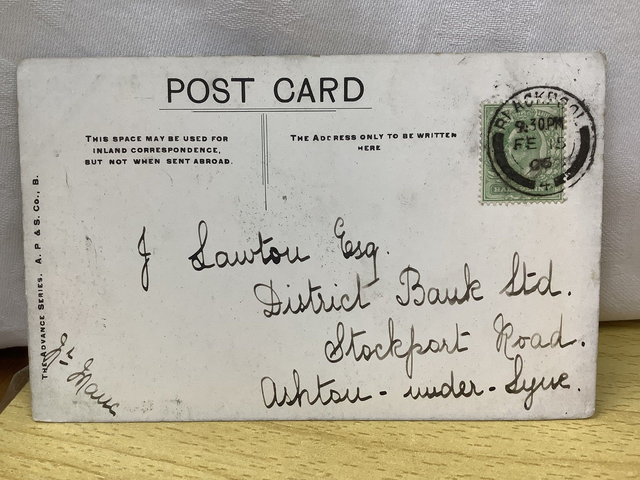 POST CARD
THIS SPACE MAY BE USED FOR
INLAND CORRESPONDENCE,
BUT NOT WHEN SENT ABROAD.
THE ADDRESS ONLY TO BE WRITTEN
HERE
BLACKPOOL
9.30PM
FE 15
06
J Lawton Esq.
District Bank Ltd.
Stockport Road.
Ashton-under-Lyne.
THE ADVANCE SERIES. A. P & S. Co., B.